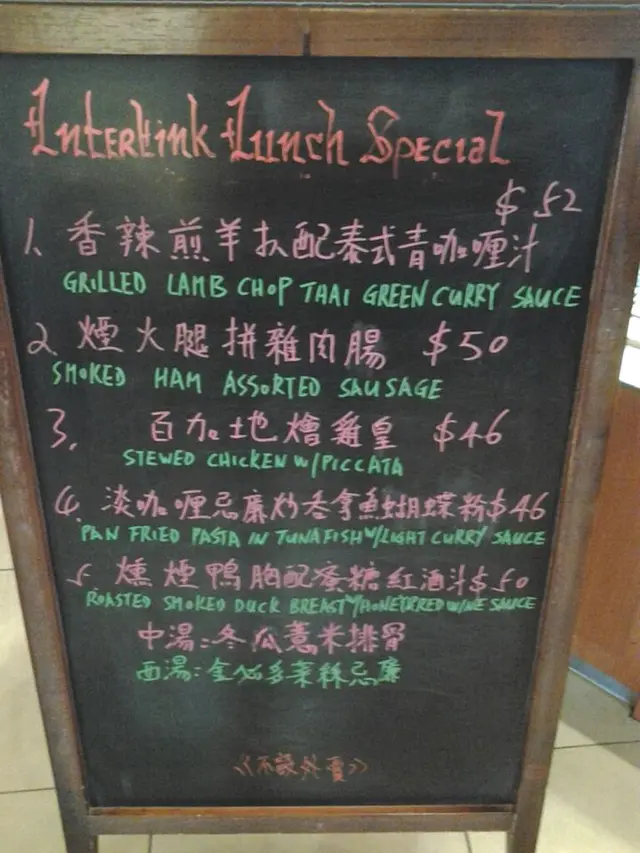 Interlink Lunch Special
$52
1. 香辣煎羊扒配泰式青咖喱汁
GRILLED LAMB CHOP THAI GREEN CURRY SAUCE
2. 煙火腿拼雜肉腸 $50
SMOKED HAM ASSORTED SAUSAGE
3. 百加地燴雞皇 $46
STEWED CHICKEN W/PICCATA
4. 淡咖喱忌廉炒吞拿魚蝴蝶粉 $46
PAN FRIED PASTA IN TUNAFISH W/LIGHT CURRY SAUCE
5. 燻煙鴨胸配蜜糖紅酒汁 $50
ROASTED SMOKED DUCK BREAST W/HONEY RED WINE SAUCE
中湯:冬瓜薏米排骨
西湯:金必多菜絲忌廉
<<不設外賣>>